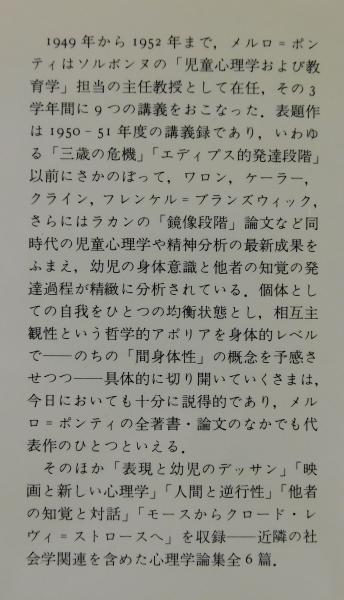 1949 年から 1952 年まで，メルロ＝ポン
ティはソルボンヌの「児童心理学および教
育学」担当の主任教授として在任，その3
学年間に9つの講義をおこなった．表題作
は 1950－51 年度の講義録であり，いわゆ
る「三歳の危機」「エディプス的発達段階」
以前にさかのぼって，ワロン，ケーラー，
クライン，フレンケル＝ブランズウィック，
さらにはラカンの「鏡像段階」論文など同
時代の児童心理学や精神分析の最新成果を
ふまえ，幼児の身体意識と他者の知覚の発
達過程が精緻に分析されている．個体とし
ての自我をひとつの均衡状態とし，相互主
観性という哲学的アポリアを身体的レベル
で――のちの「間身体性」の概念を予感さ
せつつ――具体的に切り開いていくさまは，
今日においても十分に説得的であり，メル
ロ＝ポンティの全著書・論文のなかでも代
表作のひとつといえる．
そのほか「表現と幼児のデッサン」「映
画と新しい心理学」「人間と逆行性」「他者
の知覚と対話」「モースからクロード・レ
ヴィ＝ストロースへ」を収録――近隣の社
会学関連を含めた心理学論集全6篇．